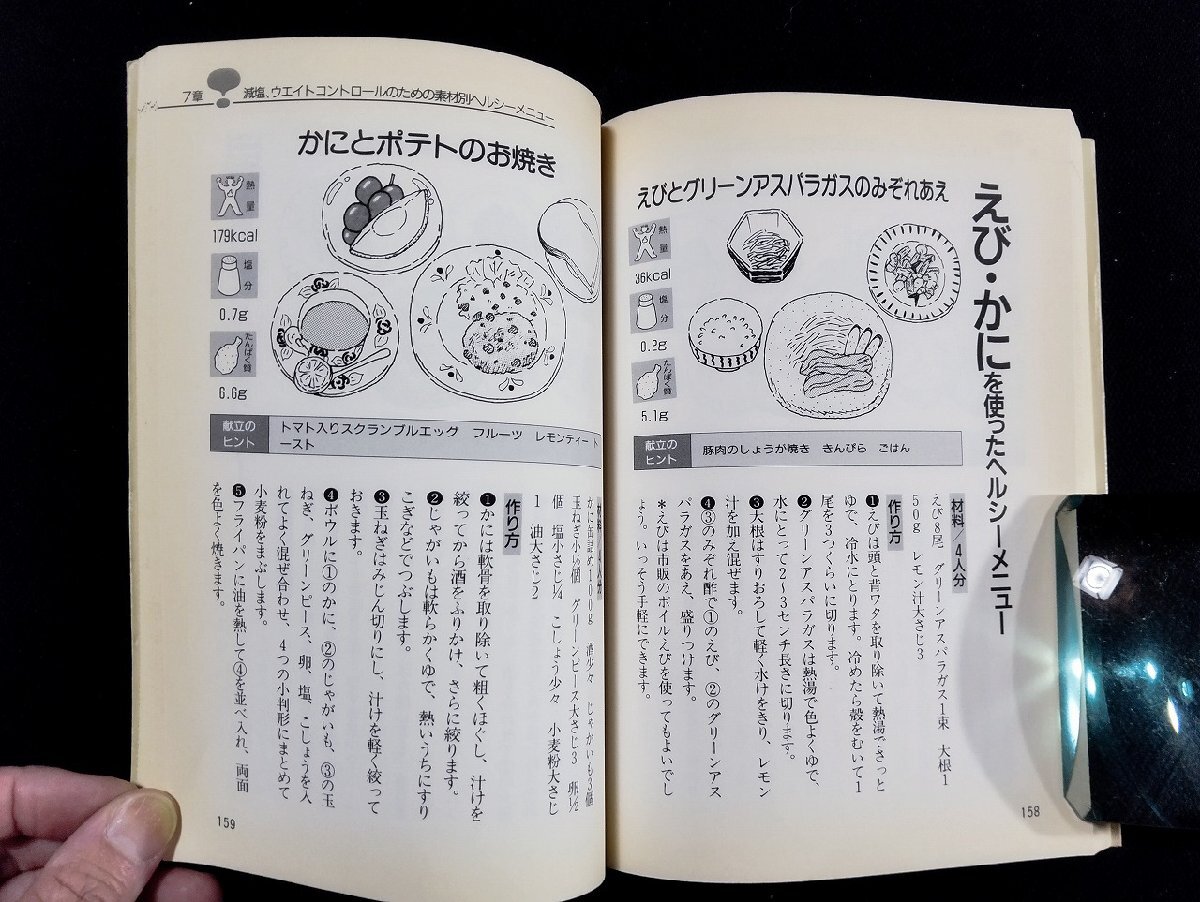 えび・かにを使ったヘルシーメニュー
えびとグリーンアスパラガスのみぞれあえ
熱量
36kcal
塩分
0.2g
たんぱく質
5.1g
献立のヒント
豚肉のしょうが焼き きんぴら ごはん
材料/4人分
えび8尾 グリーンアスパラガス1束 大根1
50g レモン汁大さじ3
作り方
❶えびは頭と背ワタを取り除いて熱湯でさっと
ゆで、冷水にとります。冷めたら殻をむいて1
尾を3つくらいに切ります。
❷グリーンアスパラガスは熱湯で色よくゆで、
水にとって2〜3センチ長さに切ります。
❸大根はすりおろして軽く水けをきり、レモン
汁を加え混ぜます。
❹③のみぞれ酢で①のえび、②のグリーンアス
パラガスをあえ、盛りつけます。
*えびは市販のボイルえびを使ってもよいでし
ょう。いっそう手軽にできます。
158
7章 減塩、ウエイトコントロールのための素材別ヘルシーメニュー
かにとポテトのお焼き
熱量
179kcal
塩分
0.7g
たんぱく質
6.6g
献立のヒント
トマト入りスクランブルエッグ フルーツ レモンティー ト
ースト
材料/4人分
かに缶詰め100g 酒少々 じゃがいも3個
玉ねぎ小½個 グリーンピース大さじ3 卵½
個 塩小さじ¼ こしょう少々 小麦粉大さじ
1 油大さじ2
作り方
❶かには軟骨を取り除いて粗くほぐし、汁けを
絞ってから酒をふりかけ、さらに絞ります。
❷じゃがいもは軟らかくゆで、熱いうちにすり
こぎなどでつぶします。
❸玉ねぎはみじん切りにし、汁けを軽く絞って
おきます。
❹ボウルに①のかに、②のじゃがいも、③の玉
ねぎ、グリーンピース、卵、塩、こしょうを入
れてよく混ぜ合わせ、4つの小判形にまとめて
小麦粉をまぶします。
❺フライパンに油を熱して④を並べ入れ、両面
を色よく焼きます。
159